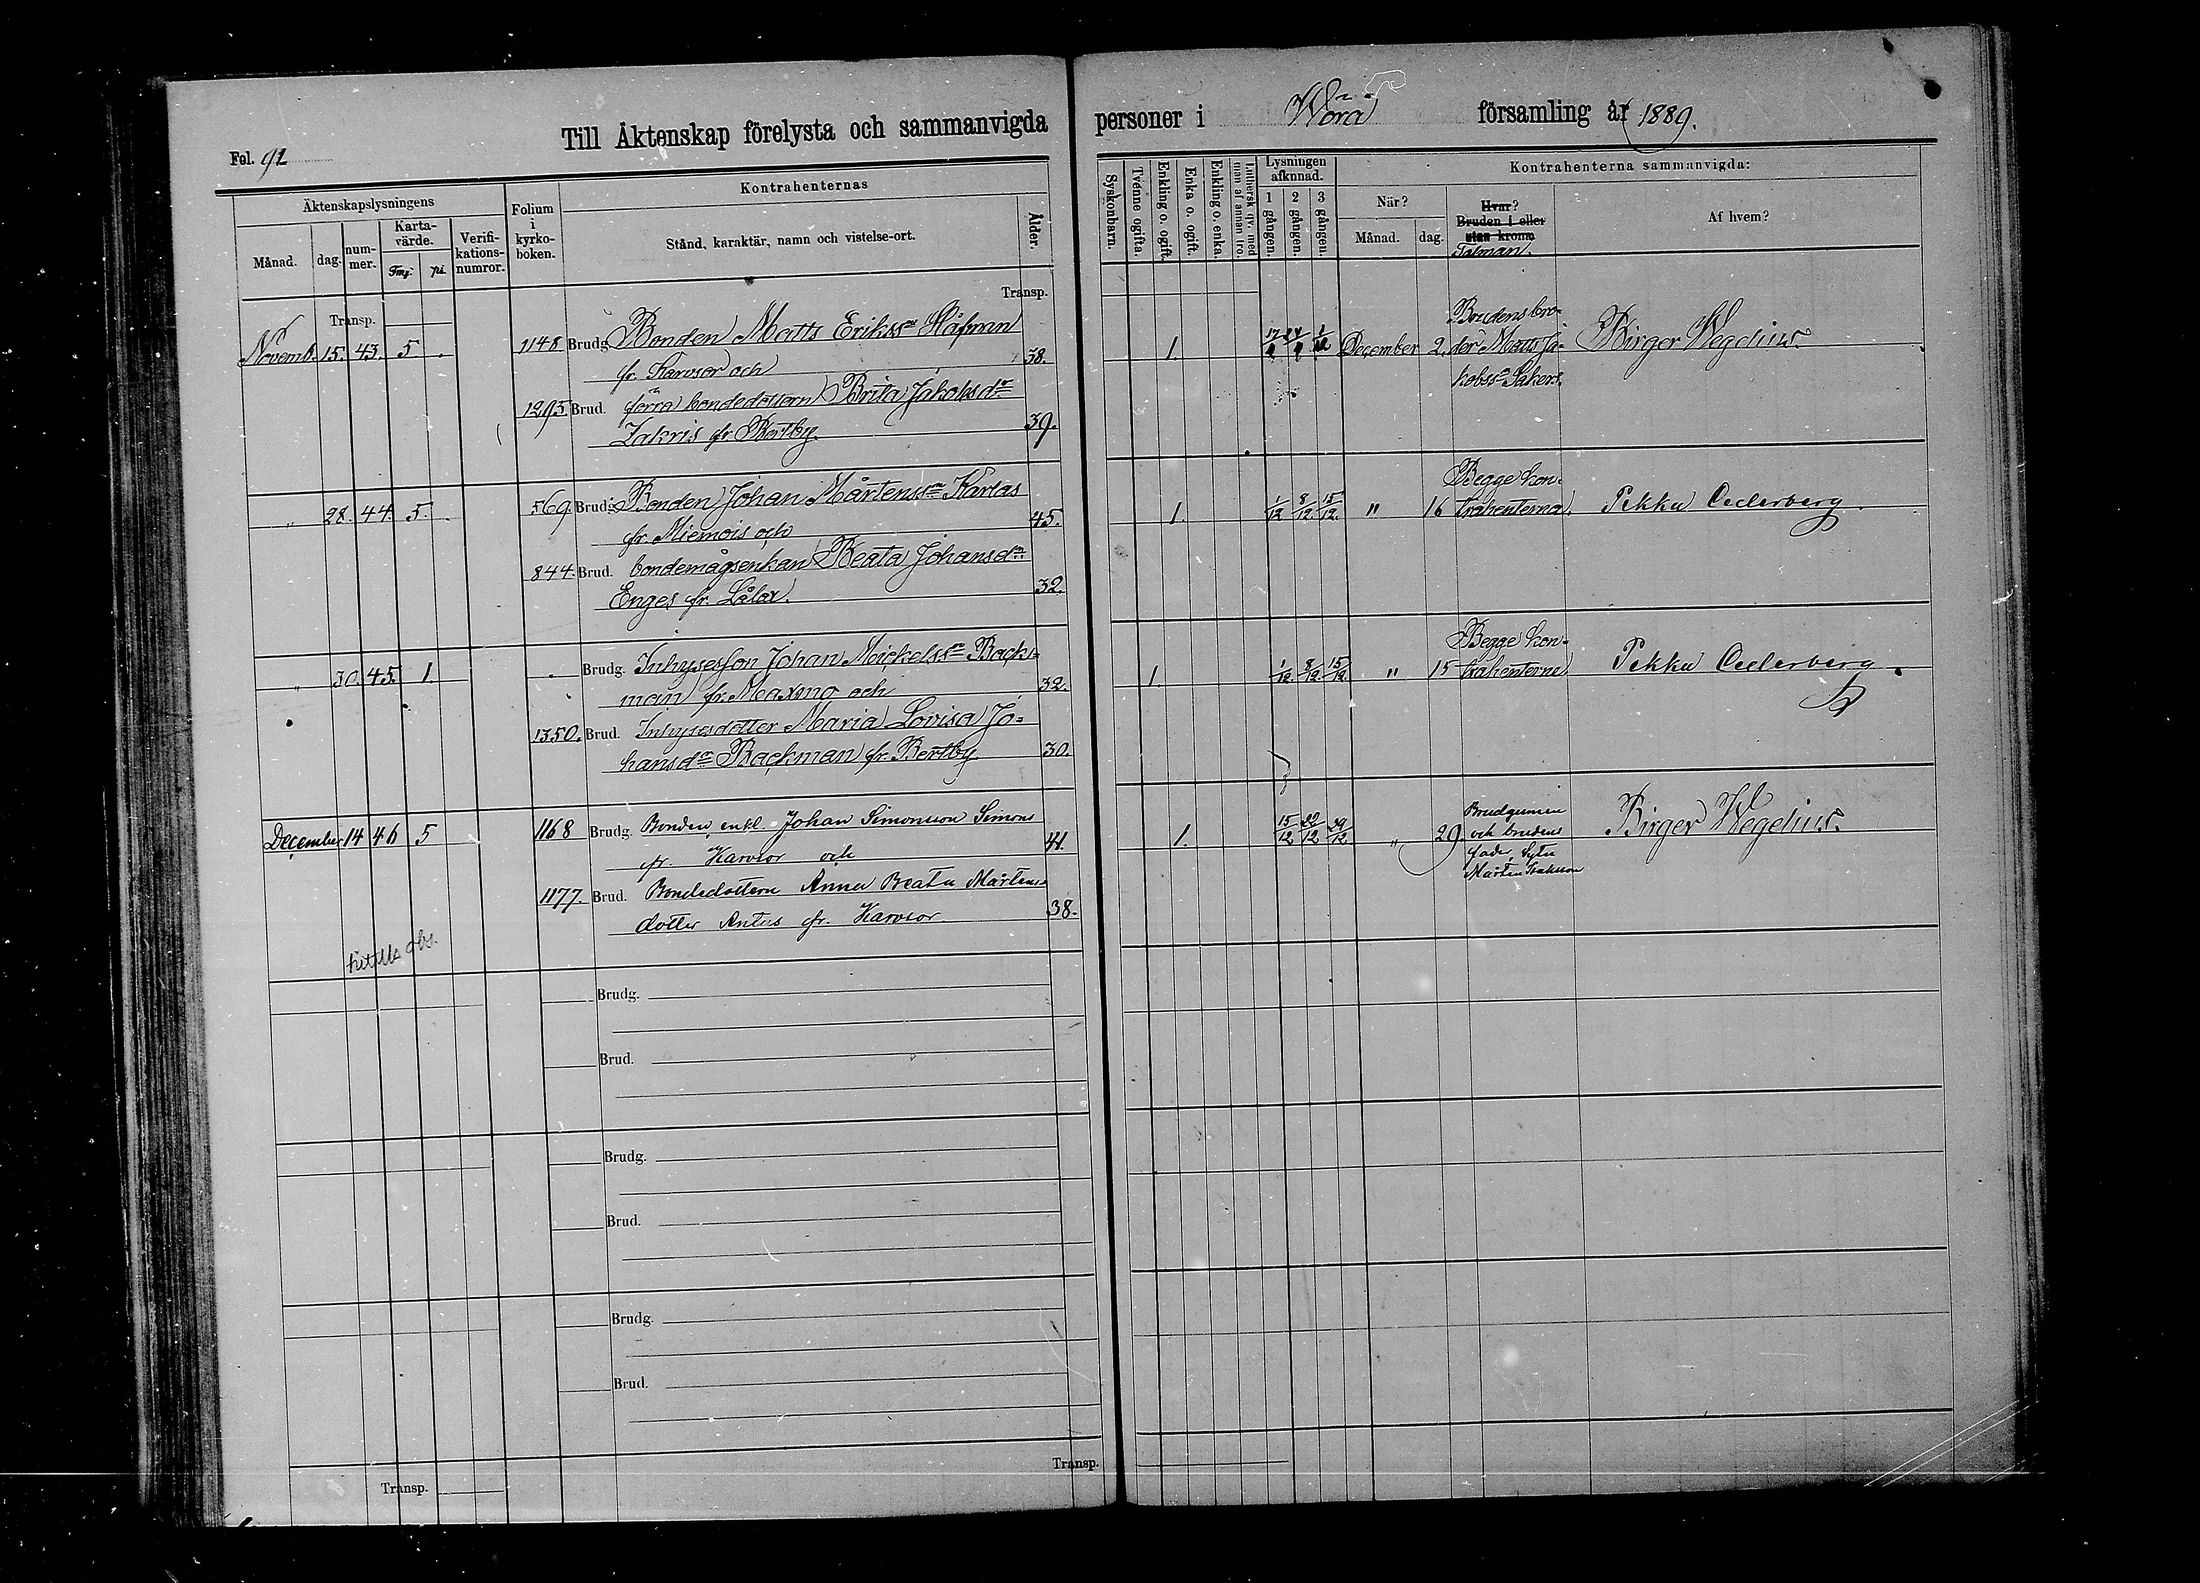 Fol. 92
Till Äktenskap förelysta och sammanvigda
Äktenskapslysningens
Månad.
dag.
num-
mer.
Karta-
värde.
Fmg.
pi.
Verifi-
kations-
numror.
Folium
i
kyrko-
boken.
Kontrahenternas
Stånd, karaktär, namn och vistelse-ort.
Ålder.
Transp.
Transp.
Novemb. 15. 43. 5 . 1148 Brudg. Bonden Matts Erikssn Håfman
fr. Karvsor och 38.
1295. Brud. förra bondedottern Brita Jakobsdr
Zakris fr. Bertby. 39.
" 28. 44. 5. . 569. Brudg. Bonden Johan Mårtenssn Karlas
fr. Miemois och 45.
844. Brud. bondemågsenkan Beata Johansdr
Enges fr. Lålax. 32.
" 30. 45. 1. . Brudg. Inhysesson Johan Mickelssn Back-
man fr. Maxmo och 32.
1350. Brud. Inhysesdotter Maria Lovisa Jo-
hansdr Backman fr. Bertby. 30.
December 14 46 5 1168 Brudg. Bonden, enkl. Johan Simonsson Simons
fr. Karvsor och 41.
1177. Brud. Bondedottern Anna Beata Mårtens-
dotter Antus fr. Karvsor 38.
Brudg.
Brud.
Brudg.
Brud.
Brudg.
Brud.
Transp.
Transp.
personer i Wörå församling år 1889.
Syskonbarn.
Tvenne ogifta.
Enkling o. ogift.
Enka o. ogift.
Enkling o. enka.
Luthersk qv. med
man af annan tro.
Lysningen
afkunnad.
1 gången.
2 gången.
3 gången.
Kontrahenterna sammanvigda:
När?
Månad.
dag.
Hvar?
Bruden i eller
utan krona
Talman.
Af hvem?
Brudens bro-
1. December 2. der Matts Ja- Birger Wegelius.
Begge kon-
1. 1/12 8/12 15/12. " 16 trahenterna. Pekka Cederberg.
Begge kon-
1. 1/12. 8/12 15/12 " 15 trahenterne Pekka Cederberg.
Brudgummen
1. 15/12 22/12 29/12. " 29. och brudens Birger Wegelius.
fader
Mårten Isaksson